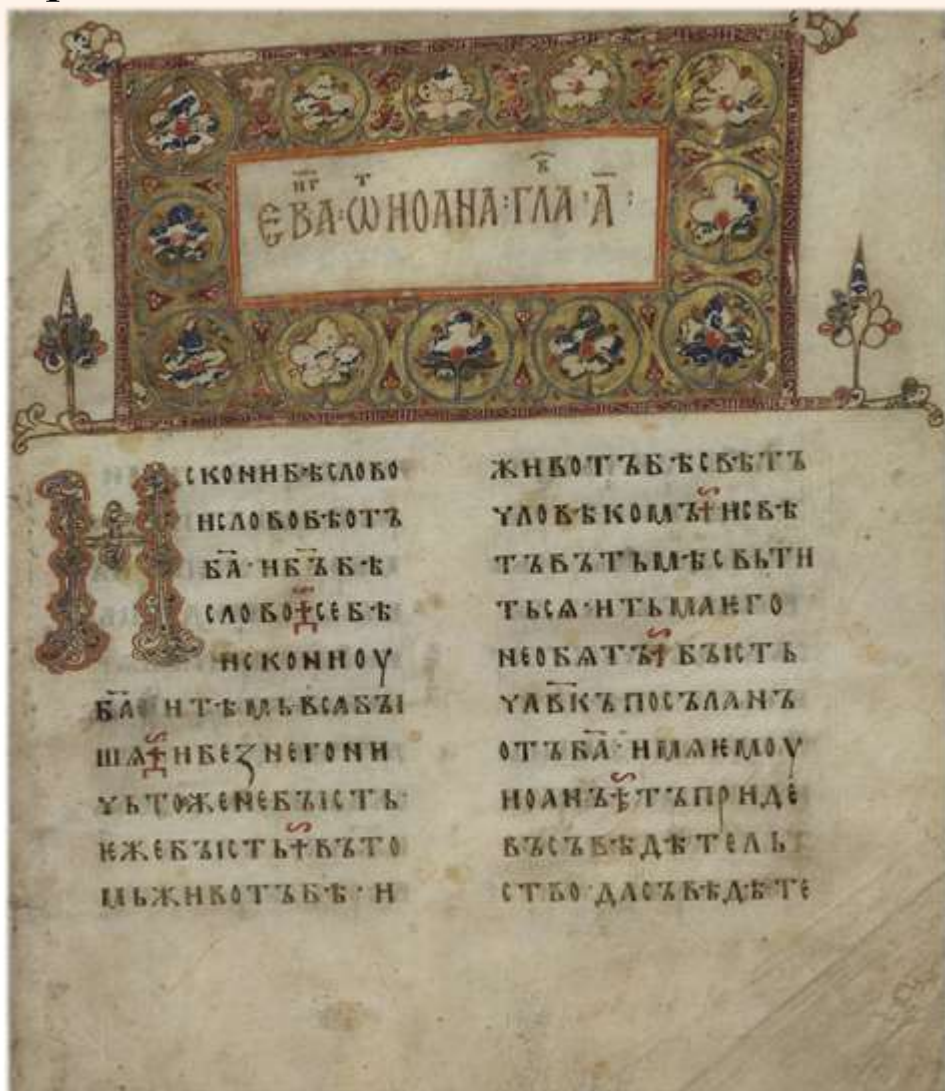 ЕВАНГ · ѾНОАНА : ГЛАВ · А҃ :
ИСКОНИБѢСЛОВО
ИСЛОВОБѢОТЪ
БА҃ · ИБЪ҃БѢ
СЛОВО · СЕБѢ
ИСКОНИОУ
БА҃ · ИТѢМЬВСАБЪІ
ШѦ · ИБЕЗНЕГОНИ
ЧЬТОЖЕНЕБЪІСТЬ ·
ѤЖЕБЪІСТЬ · ВЪТО
МЬЖИВОТЪБѢ · И
ЖИВОТЪБѢСВѢТЪ
ЧЛОВѢКОМЪ · ИСВѢ
ТЪВЪТЬМѢСВЬТИ
ТЬСѦ · ИТЬМАѤГО
НЕОБѦТЪ · БЪІСТЬ
ЧЛВ҃КЪПОСЪЛАНЪ
ОТЪБА҃ · ИМѦѤМОУ
ИОАНЪ · ТЪПРИДЕ
ВЪСЪВѢДѢТЕЛЬ
СТВО · ДАСЪВѢДѢТЕ